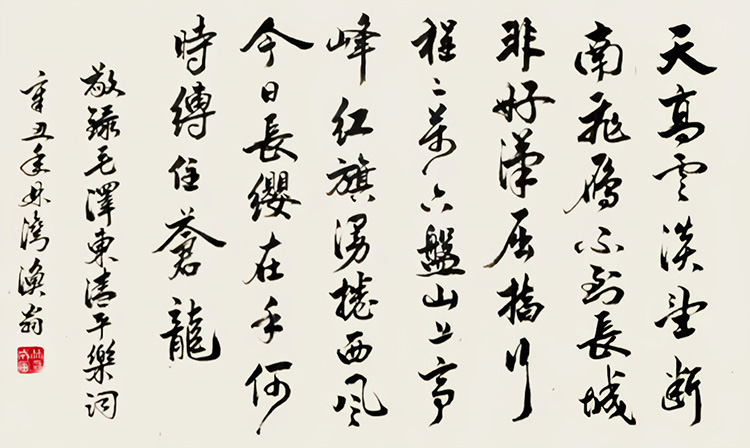 天高雲淡望断
南飛雁不到長城
非好漢屈指行
程二萬六盤山上高
峰紅旗漫捲西風
今日長纓在手何
時縛住蒼龍
敬録毛澤東清平樂詞
辛丑年灣翁